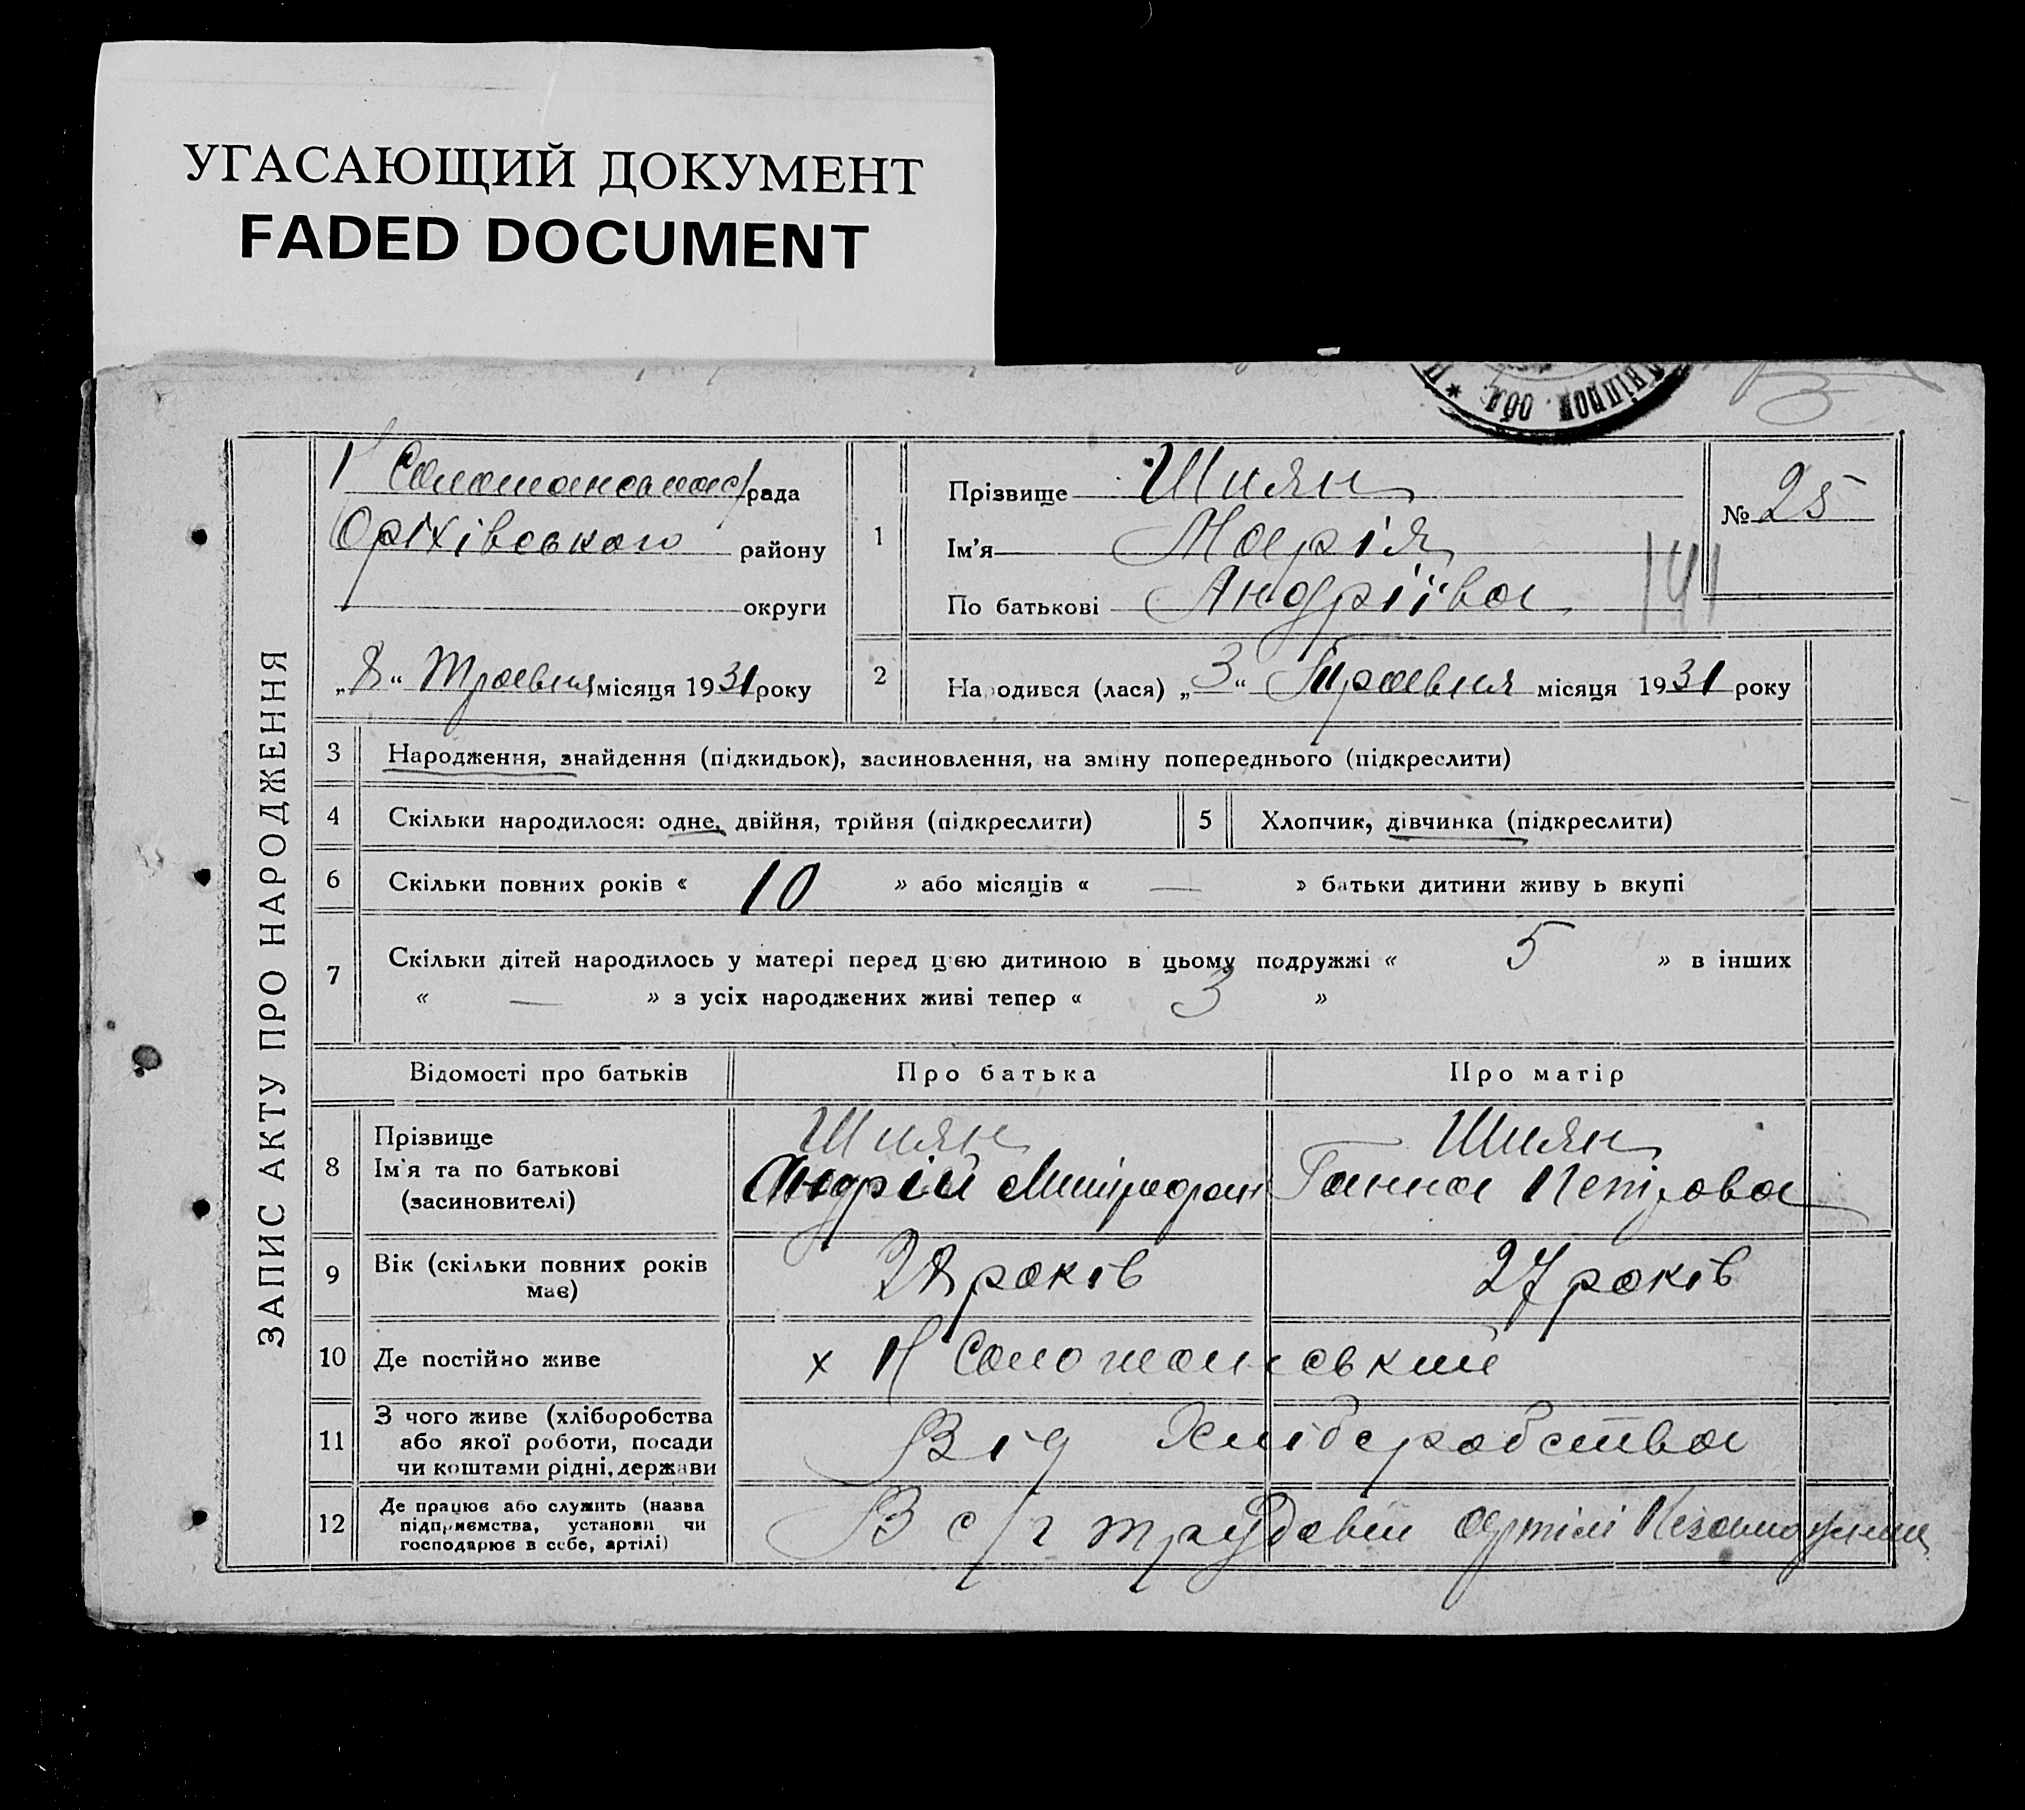 УГАСАЮЩИЙ ДОКУМЕНТ
FADED DOCUMENT
Дніпроп. обл. *
ЗАПИС АКТУ ПРО НАРОДЖЕННЯ
рада
Оріхівського району
округи
„8“ Травня місяця 1931 року
1 Прізвище Шиян
Ім'я Марія
По батькові Андріївна
№ 25
141
2 Народився (лася) „3“ Травня місяця 1931 року
3 Народження, знайдення (підкидьок), засиновлення, на зміну попереднього (підкреслити)
4 Скільки народилося: одне, двійня, трійня (підкреслити) 5 Хлопчик, дівчинка (підкреслити)
6 Скільки повних років « 10 » або місяців « — » батьки дитини живу ь вкупі
7 Скільки дітей народилось у матері перед цією дитиною в цьому подружжі « 5 » в інших
« — » з усіх народжених живі тепер « 3 »
Відомості про батьків Про батька Про матір
8 Прізвище Шиян Шиян
Ім'я та по батькові Андрій Митрофан Ганна Петровна
(засиновителі)
9 Вік (скільки повних років має) 28 років 27 років
10 Де постійно живе х Н Солошанський
11 З чого живе (хліборобства
або якої роботи, посади
чи коштами рідні, держави Від Хліборобства
12 Де працює або служить (назва
підприємства, установи чи
господарює в себе, артілі) В с/г трудовій артілі Незаможник